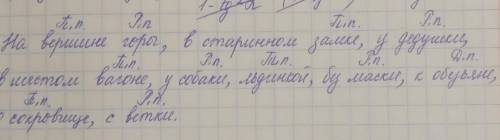 П.п. Р.п П.п. Р.п.
На вершине горы, в старинном замке, у дедушки,
П.п. Р.п. Т.п. Р.п. Д.п.
в шестом вагоне, у собаки, льдинкой, без маски, к обезьяне,
П.п. Р.п.
о сокровище, с ветки.